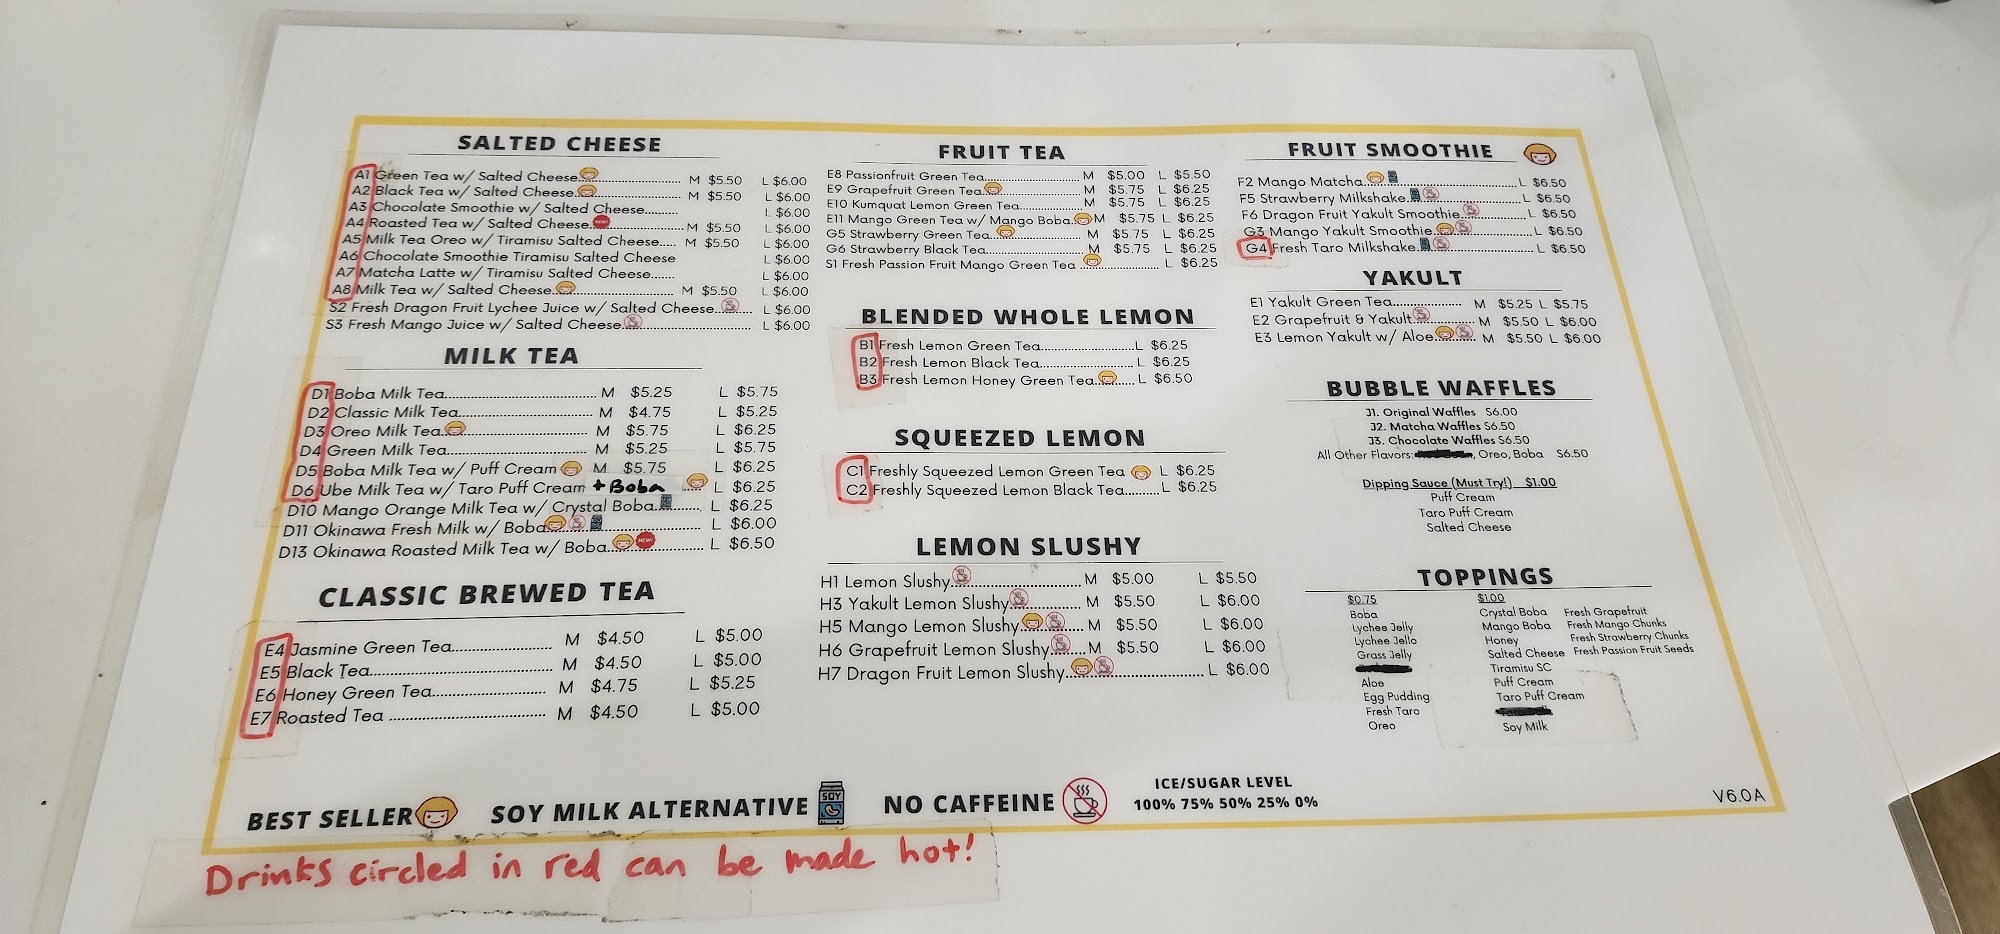 SALTED CHEESE
A1 Green Tea w/ Salted Cheese M $5.50 L $6.00
A2 Black Tea w/ Salted Cheese M $5.50 L $6.00
A3 Chocolate Smoothie w/ Salted Cheese L $6.00
A4 Roasted Tea w/ Salted Cheese NEW! M $5.50 L $6.00
A5 Milk Tea Oreo w/ Tiramisu Salted Cheese M $5.50 L $6.00
A6 Chocolate Smoothie Tiramisu Salted Cheese L $6.00
A7 Matcha Latte w/ Tiramisu Salted Cheese L $6.00
A8 Milk Tea w/ Salted Cheese M $5.50 L $6.00
S2 Fresh Dragon Fruit Lychee Juice w/ Salted Cheese L $6.00
S3 Fresh Mango Juice w/ Salted Cheese L $6.00
MILK TEA
D1 Boba Milk Tea M $5.25 L $5.75
D2 Classic Milk Tea M $4.75 L $5.25
D3 Oreo Milk Tea M $5.75 L $6.25
D4 Green Milk Tea M $5.25 L $5.75
D5 Boba Milk Tea w/ Puff Cream M $5.75 L $6.25
D6 Ube Milk Tea w/ Taro Puff Cream + Boba L $6.25
D10 Mango Orange Milk Tea w/ Crystal Boba L $6.25
D11 Okinawa Fresh Milk w/ Boba L $6.00
D13 Okinawa Roasted Milk Tea w/ Boba NEW! L $6.50
CLASSIC BREWED TEA
E4 Jasmine Green Tea M $4.50 L $5.00
E5 Black Tea M $4.50 L $5.00
E6 Honey Green Tea M $4.75 L $5.25
E7 Roasted Tea M $4.50 L $5.00
FRUIT TEA
E8 Passionfruit Green Tea M $5.00 L $5.50
E9 Grapefruit Green Tea M $5.75 L $6.25
E10 Kumquat Lemon Green Tea M $5.75 L $6.25
E11 Mango Green Tea w/ Mango Boba M $5.75 L $6.25
G5 Strawberry Green Tea M $5.75 L $6.25
G6 Strawberry Black Tea M $5.75 L $6.25
S1 Fresh Passion Fruit Mango Green Tea L $6.25
BLENDED WHOLE LEMON
B1 Fresh Lemon Green Tea L $6.25
B2 Fresh Lemon Black Tea L $6.25
B3 Fresh Lemon Honey Green Tea L $6.50
SQUEEZED LEMON
C1 Freshly Squeezed Lemon Green Tea L $6.25
C2 Freshly Squeezed Lemon Black Tea L $6.25
LEMON SLUSHY
H1 Lemon Slushy M $5.00 L $5.50
H3 Yakult Lemon Slushy M $5.50 L $6.00
H5 Mango Lemon Slushy M $5.50 L $6.00
H6 Grapefruit Lemon Slushy M $5.50 L $6.00
H7 Dragon Fruit Lemon Slushy L $6.00
FRUIT SMOOTHIE
F2 Mango Matcha L $6.50
F5 Strawberry Milkshake L $6.50
F6 Dragon Fruit Yakult Smoothie L $6.50
G3 Mango Yakult Smoothie L $6.50
G4 Fresh Taro Milkshake L $6.50
YAKULT
E1 Yakult Green Tea M $5.25 L $5.75
E2 Grapefruit & Yakult M $5.50 L $6.00
E3 Lemon Yakult w/ Aloe M $5.50 L $6.00
BUBBLE WAFFLES
J1. Original Waffles $6.00
J2. Matcha Waffles $6.50
J3. Chocolate Waffles $6.50
All Other Flavors: , Oreo, Boba $6.50
Dipping Sauce (Must Try!) $1.00
Puff Cream
Taro Puff Cream
Salted Cheese
TOPPINGS
$0.75
Boba
Lychee Jelly
Lychee Jello
Grass Jelly
Aloe
Egg Pudding
Fresh Taro
Oreo
$1.00
Crystal Boba
Mango Boba
Honey
Salted Cheese
Tiramisu SC
Puff Cream
Taro Puff Cream
Soy Milk
Fresh Grapefruit
Fresh Mango Chunks
Fresh Strawberry Chunks
Fresh Passion Fruit Seeds
BEST SELLER
SOY MILK ALTERNATIVE
SOY
NO CAFFEINE
ICE/SUGAR LEVEL
100% 75% 50% 25% 0%
V6.0A
Drinks circled in red can be made hot!